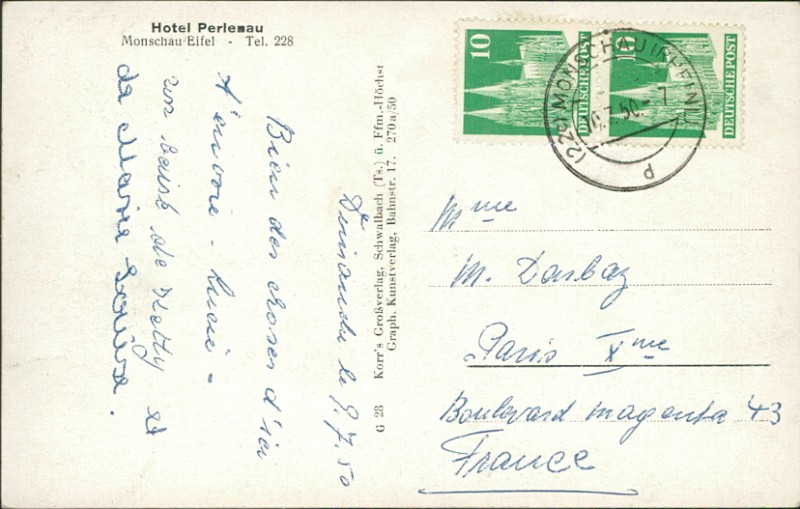 Hotel Perlenau
Monschau/Eifel - Tel. 228
Dimanche le 9.7.50
Bien des choses d'ici
Lucie -
un baisé de Ketty et
de Marie Louise.
G 28 Korr's Großverlag, Schwalbach (Ts.) ü. Ffm.-Höchst
Graph. Kunstverlag, Bahnstr. 17. 270a/50
10
DEUTSCHE POST
10
DEUTSCHE POST
(22c) MONSCHAU (RHEINL)
.7.50.-7
Mme
M. Darbaz
Paris Xme
Boulevard magenta 43
France